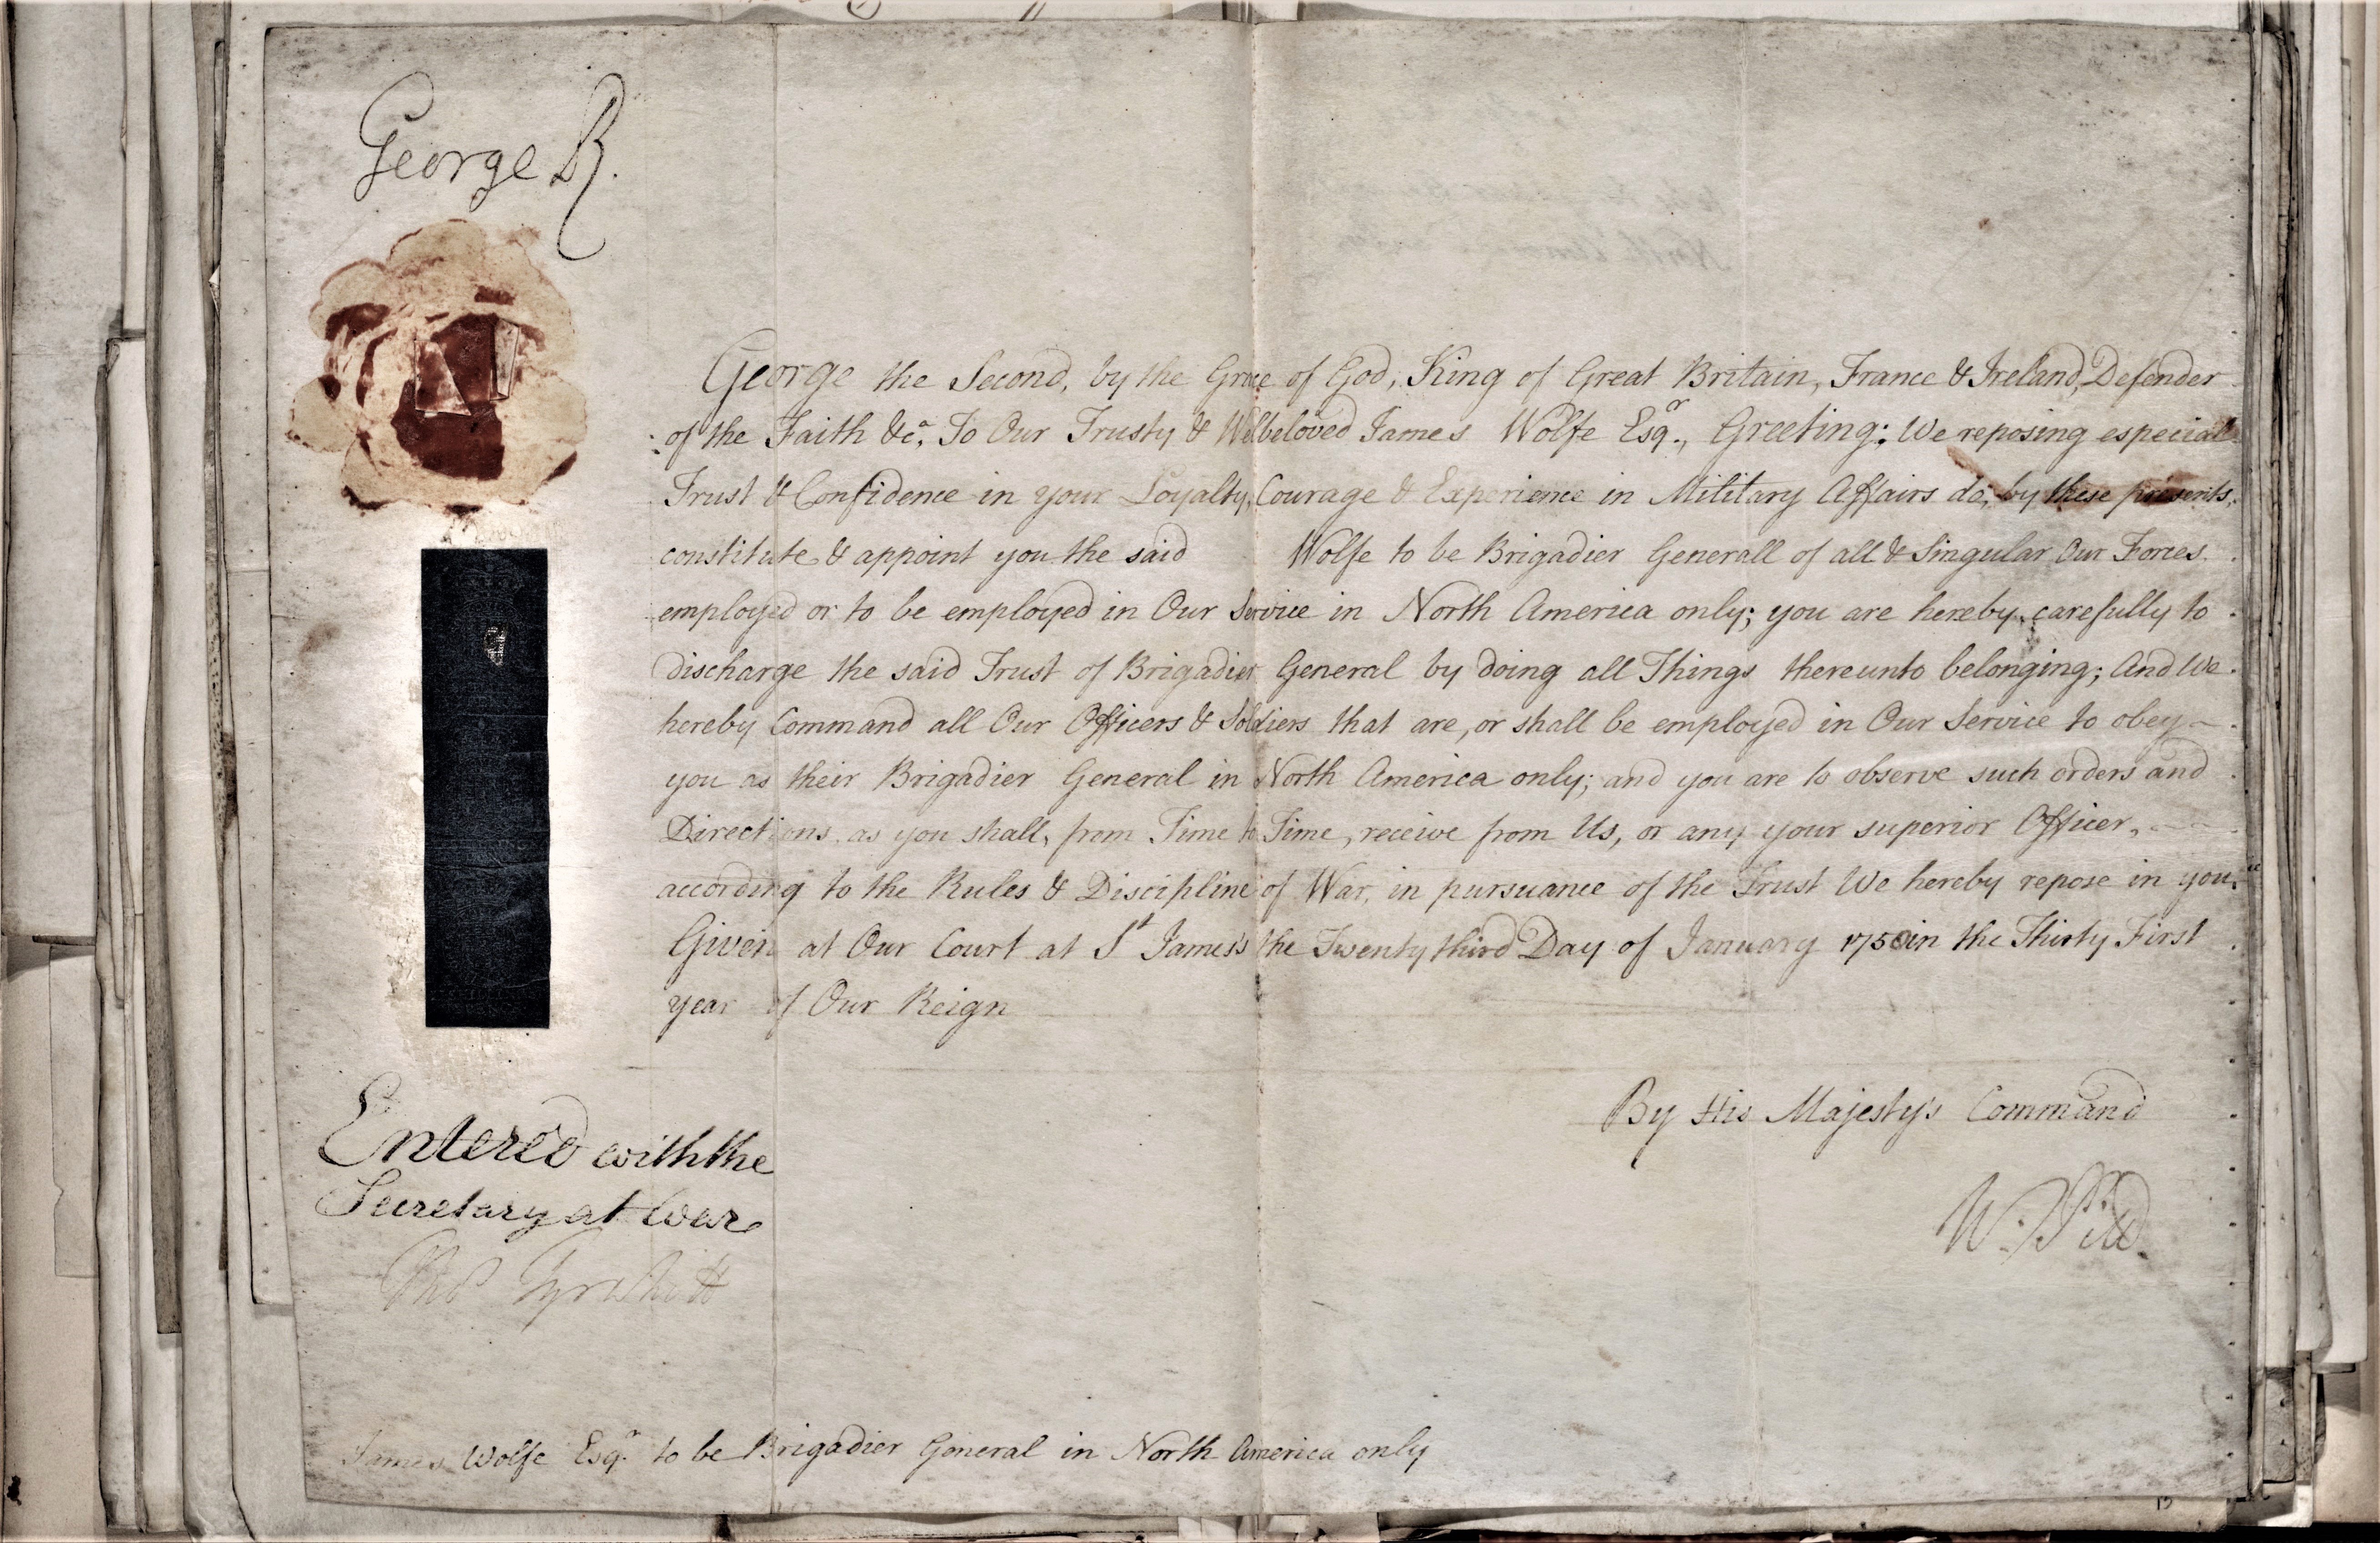 George R.
George the Second, by the Grace of God, King of Great Britain, France & Ireland, Defender
of the Faith &c.a, To Our Trusty & Welbeloved James Wolfe Esq.r, Greeting; We reposing especiall
Trust & Confidence in your Loyalty, Courage & Experience in Military Affairs do, by these presents,
constitute & appoint you the said Wolfe to be Brigadier Generall of all & Singular Our Forces
employed or to be employed in Our Service in North America only; you are hereby carefully to
discharge the said Trust of Brigadier General by doing all Things thereunto belonging; And We
hereby Command all Our Officers & Soldiers that are, or shall be employed in Our Service to obey
you as their Brigadier General in North America only; and you are to observe such orders and
Directions, as you shall, from Time to Time, receive from Us, or any your superior Officer,
according to the Rules & Discipline of War, in pursuance of the Trust We hereby repose in you.
Given at Our Court at St James's the Twenty third Day of January 1758 in the Thirty First
year of Our Reign
By His Majesty's Command
W. Pitt.
Entered with the
Secretary at War
Tho Tyrwhitt
James Wolfe Esq.r to be Brigadier General in North America only